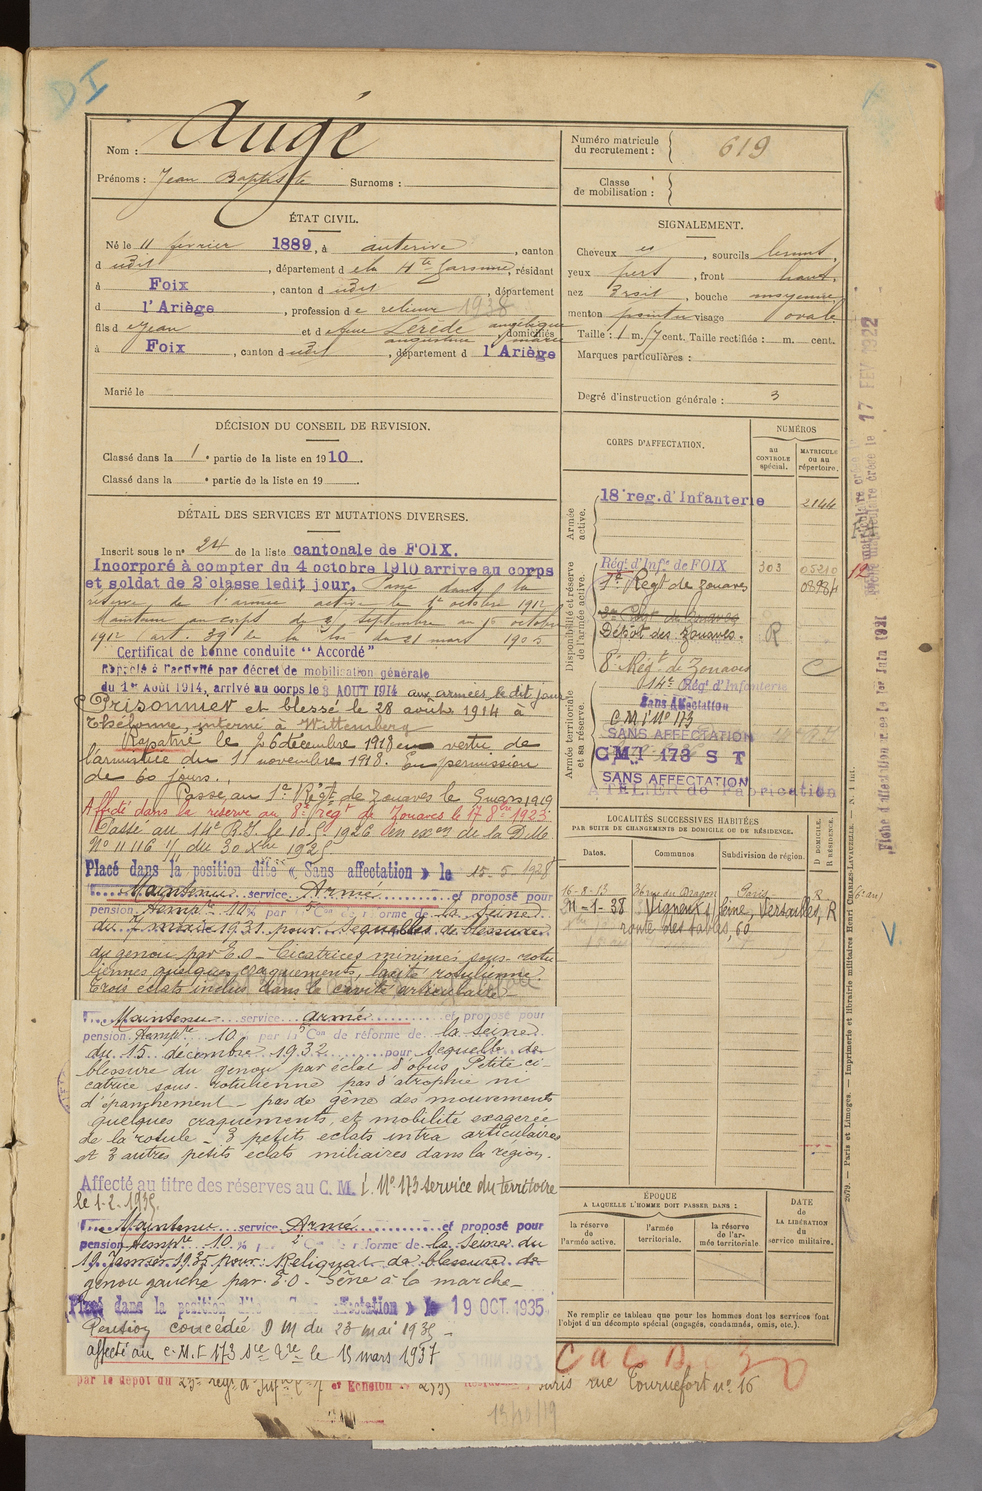 DI
Nom : Augé
Prénoms : Jean Baptiste Surnoms :
Numéro matricule du recrutement : 619
Classe de mobilisation :
ÉTAT CIVIL.
Né le 11 février 1889, à auterive, canton
d udit, département de la Hte Garonne, résidant
à Foix, canton d udit, département
d l'Ariège, profession de relieur 1938
fils d e Jean et de feue Lérède angélique
augustine marie domiciliés
à Foix, canton d udit, département d l'Ariège
Marié le
SIGNALEMENT.
Cheveux , sourcils bruns,
yeux , front haut,
nez droit, bouche moyenne
menton pointu visage ovale
Taille : 1 m. cent. Taille rectifiée : m. cent.
Marques particulières :
Degré d'instruction générale : 3
DÉCISION DU CONSEIL DE REVISION.
Classé dans la 1e partie de la liste en 1910.
Classé dans la e partie de la liste en 19
DÉTAIL DES SERVICES ET MUTATIONS DIVERSES.
Inscrit sous le n° 24 de la liste cantonale de FOIX.
Incorporé à compter du 4 octobre 1910 arrive au corps
et soldat de 2e classe ledit jour, Passé dans la
réserve de l'armée active le 1er octobre 1912
Maintenu au corps du 25 septembre au octobre
1912 (art. 39 de la loi du 21 mars 1905
Certificat de bonne conduite "Accordé"
Rappelé à l'activité par décret de mobilisation générale
du 1er Août 1914, arrivé au corps le 3 AOUT 1914 aux armées le dit jour
Prisonnier et blessé le 28 août 1914 à
Thélonne, interné à Wittemberg
Rapatrié le 26 décembre 1918 en vertu de
l'armistice du 11 novembre 1918. En permission
de 60 jours.
Passé au 1er Régt de Zouaves le 5 mars 1919
Affecté dans la réserve au 8e régt de Zouaves le 17 8bre 1923.
Passé au 14e R.I. le 10.5.1926 en exon de la D.M.
N° 11116 1/1 du 30 Xbre 1925
Placé dans la position dite « Sans affectation » le 15-5-1928
Maintenu service Armé et proposé pour
pension tempre 10 % par Con de réforme de la Seine
du 7 1931 pour Sequelles de blessure
du genou par E.O - Cicatrices minimes sous-rotu
liennes quelques craquements, laxité rotulienne.
Trois éclats inclus dans la cavité articulaire
Maintenu service armé et proposé pour
pension tempre 10 % par Con de réforme de la Seine
du 15 décembre 1932 pour sequelle de
blessure du genou par éclat d'obus Petite ci-
catrice sous-rotulienne pas d'atrophie ni
d'épanchement - pas de gêne des mouvements
quelques craquements, et mobilité exagérée
de la rotule - 3 petits éclats intra articulaires
et 3 autres petits éclats miliaires dans la région.
Affecté au titre des réserves au C. M. I. N° 173 service du territoire
le 1-2-1935.
Maintenu service Armé et proposé pour
pension tempre 10 % par Con de réforme de la Seine du
19 Janvier 1935 pour : Reliquat de blessure de
genou gauche par E.O - Gêne à la marche -
Placé dans la position dite Sans affectation » le 19 OCT. 1935
Pension concédée D M du 28 mai 1935 -
affecté au C.M.I 173 le 15 mars 1937
par le dépôt du et Echelon Paris rue Tournefort n° 16
13/10/19
CORPS D'AFFECTATION.
NUMÉROS
au CONTROLE spécial.
MATRICULE ou au répertoire.
Armée active.
18e reg. d'Infanterie 2144
Disponibilité et réserve de l'armée active.
Régt d'Infie de FOIX 303 05210
1er Regt de Zouaves
Dépôt des Zouaves. R
8e Régt de Zouaves C
Armée territoriale et sa réserve.
14e Régt d'Infanterie
Sans Affectation
C M I N° 173
SANS AFFECTATION
CMI 173 S T
SANS AFFECTATION
ATELIER de Fabrication
LOCALITÉS SUCCESSIVES HABITÉES
PAR SUITE DE CHANGEMENTS DE DOMICILE OU DE RÉSIDENCE.
Dates. Communes Subdivision de région. D DOMICILE. R RÉSIDENCE.
16-8-13 36 rue du Dragon Paris R
11-1-38 Vigneux s/ Seine, Versailles, R
route des sables, 60
ÉPOQUE
A LAQUELLE L'HOMME DOIT PASSER DANS :
la réserve de l'armée active.
l'armée territoriale.
la réserve de l'armée territoriale.
DATE DE LA LIBÉRATION du service militaire.
Ne remplir ce tableau que pour les hommes dont les services font
l'objet d'un décompte spécial (engagés, condamnés, omis, etc.).
2079. — Paris et Limoges. — Imprimerie et librairie militaires Henri CHARLES-LAVAUZELLE. — N. 1 bis.
17 FEV 1922
Fiche d'affectation créée le 1er Juin 1921
12